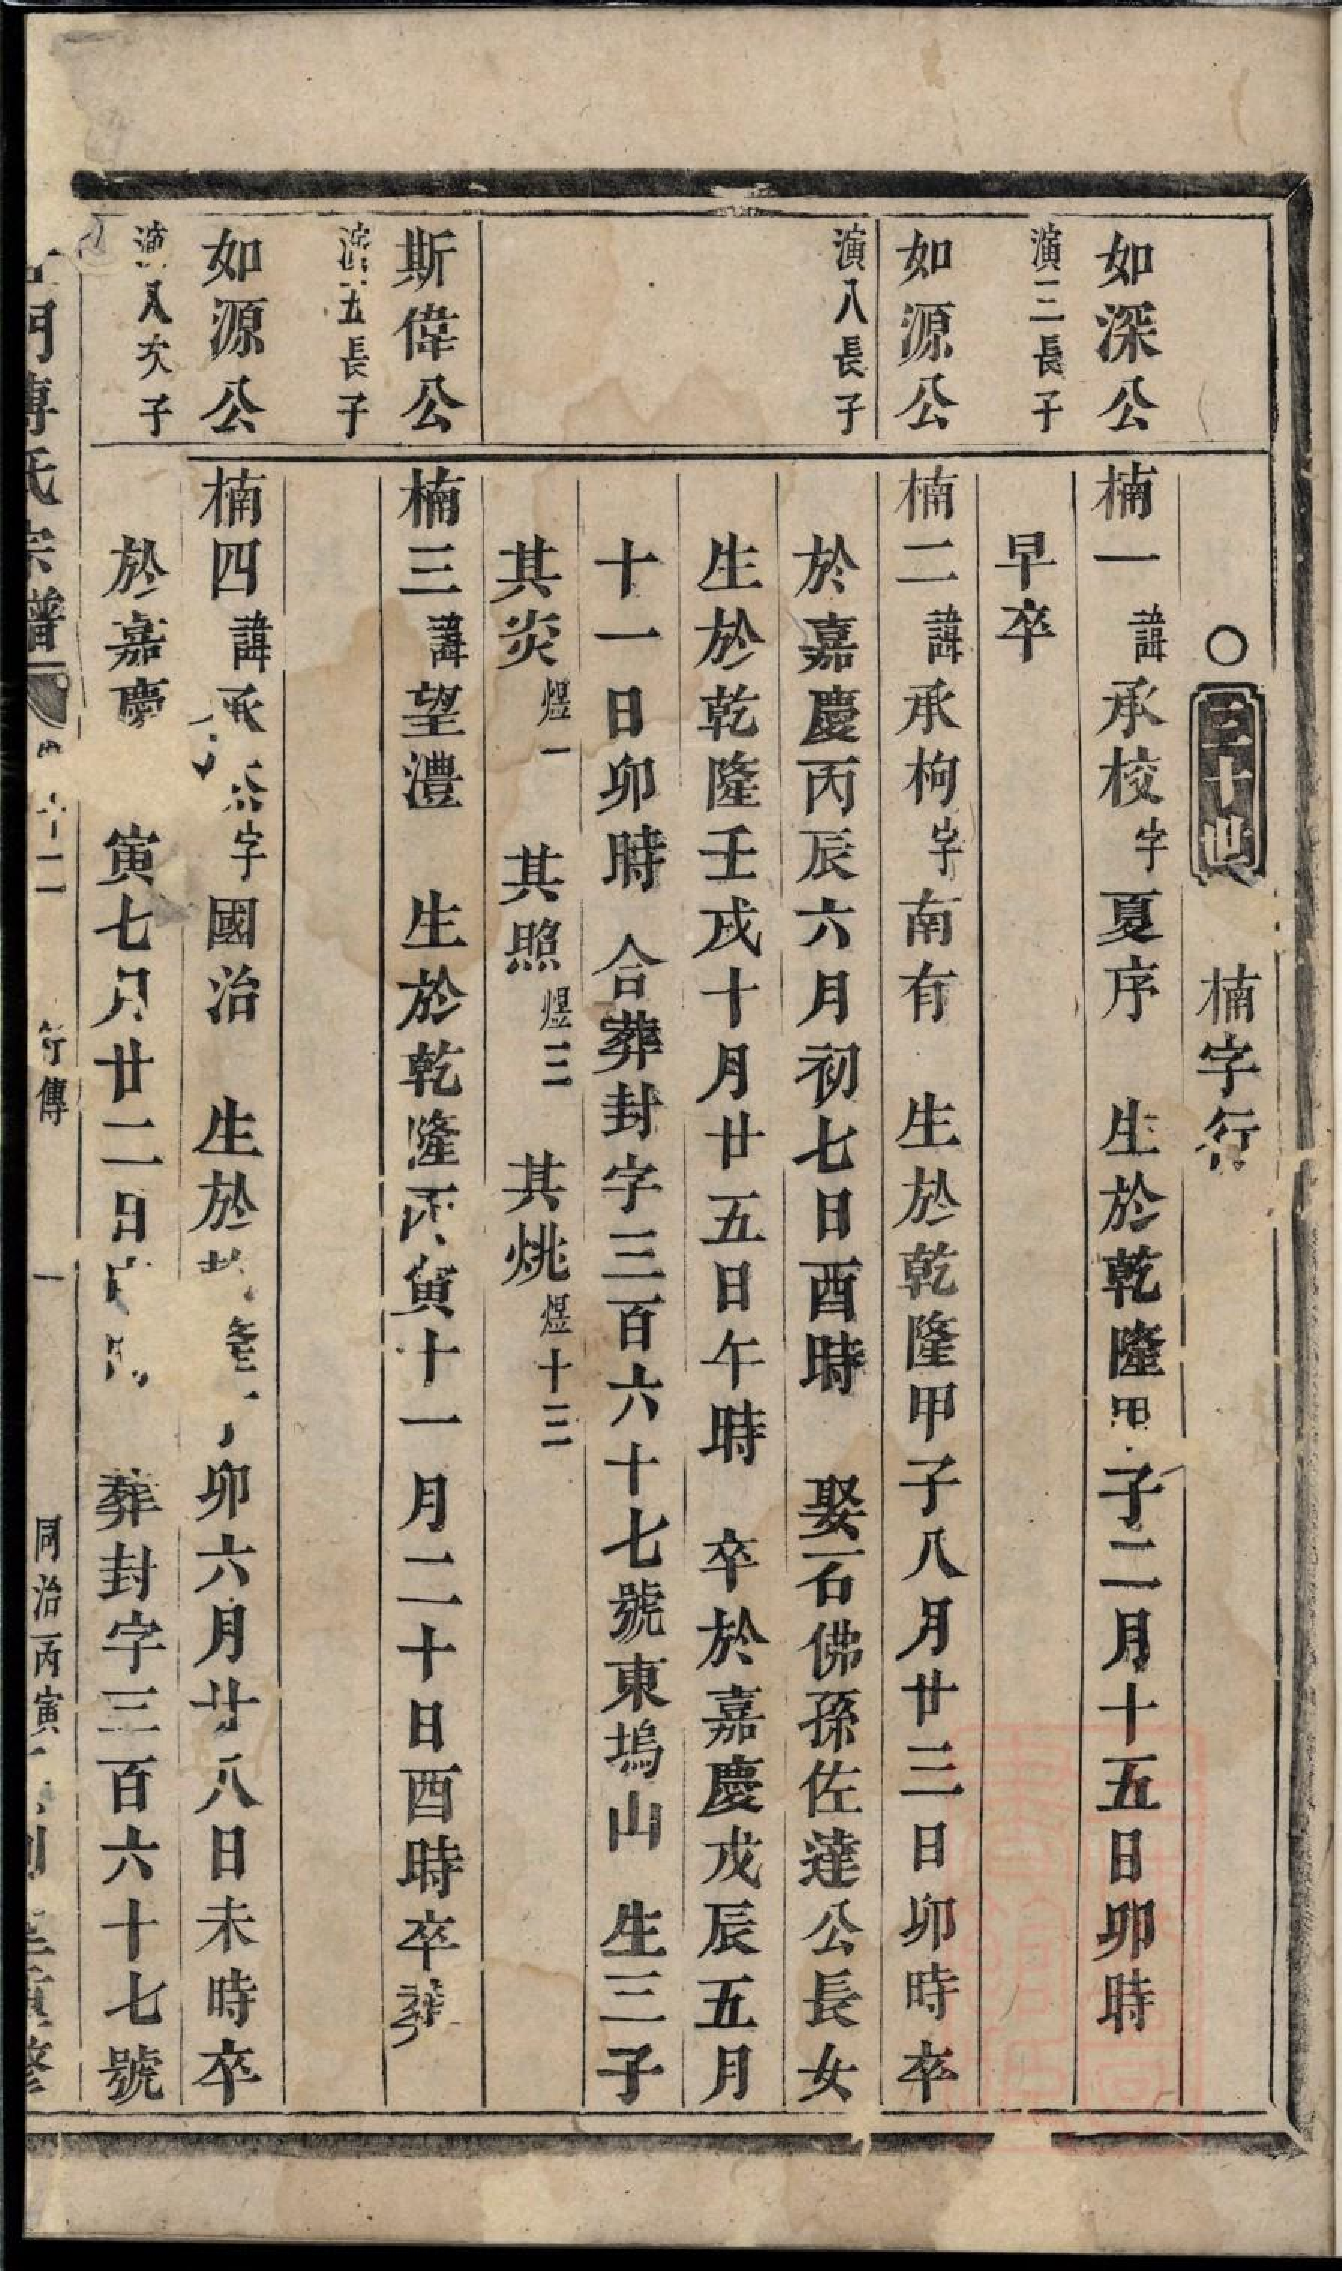 ○三十世 楠字行
如深公 楠一諱承校字夏序 生於乾隆甲子二月十五日卯時
演三長子 早卒
如源公 楠二諱承枸字南有 生於乾隆甲子八月廿三日卯時卒
演八長子 於嘉慶丙辰六月初七日酉時 娶石佛孫佐達公長女
生於乾隆壬戌十月廿五日午時 卒於嘉慶戊辰五月
十一日卯時 合葬封字三百六十七號東塢山 生三子
其炎煜一 其照煜三 其烑煜十三
斯偉公 楠三諱望澧 生於乾隆丙寅十一月二十日酉時卒葬
演五長子
如源公 楠四諱承字國治 生於隆卯六月廿八日未時卒
演八次子 於嘉慶寅七月廿二日 葬封字三百六十七號
門傅氏宗譜 行傳 一 同治丙寅 重修